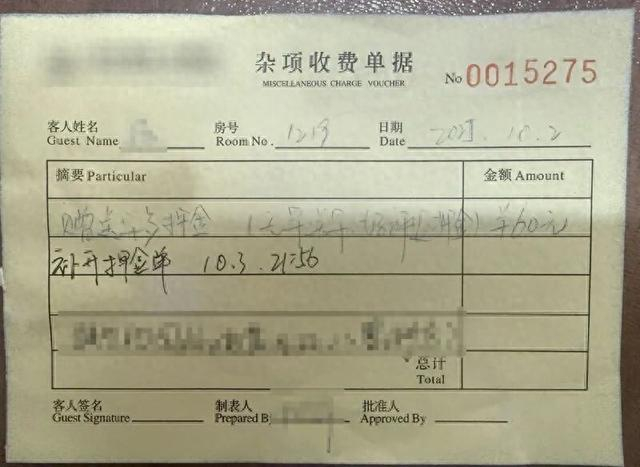 杂项收费单据
MISCELLANEOUS CHARGE VOUCHER
No 0015275
客人姓名 房号 1219 日期 2025.10.2
Guest Name Room No. Date
摘要 Particular 金额 Amount
押金 押金) 单60元
补开押金单 10.3. 21:56
总计
Total
客人签名 制表人 批准人
Guest Signature Prepared B Approved By